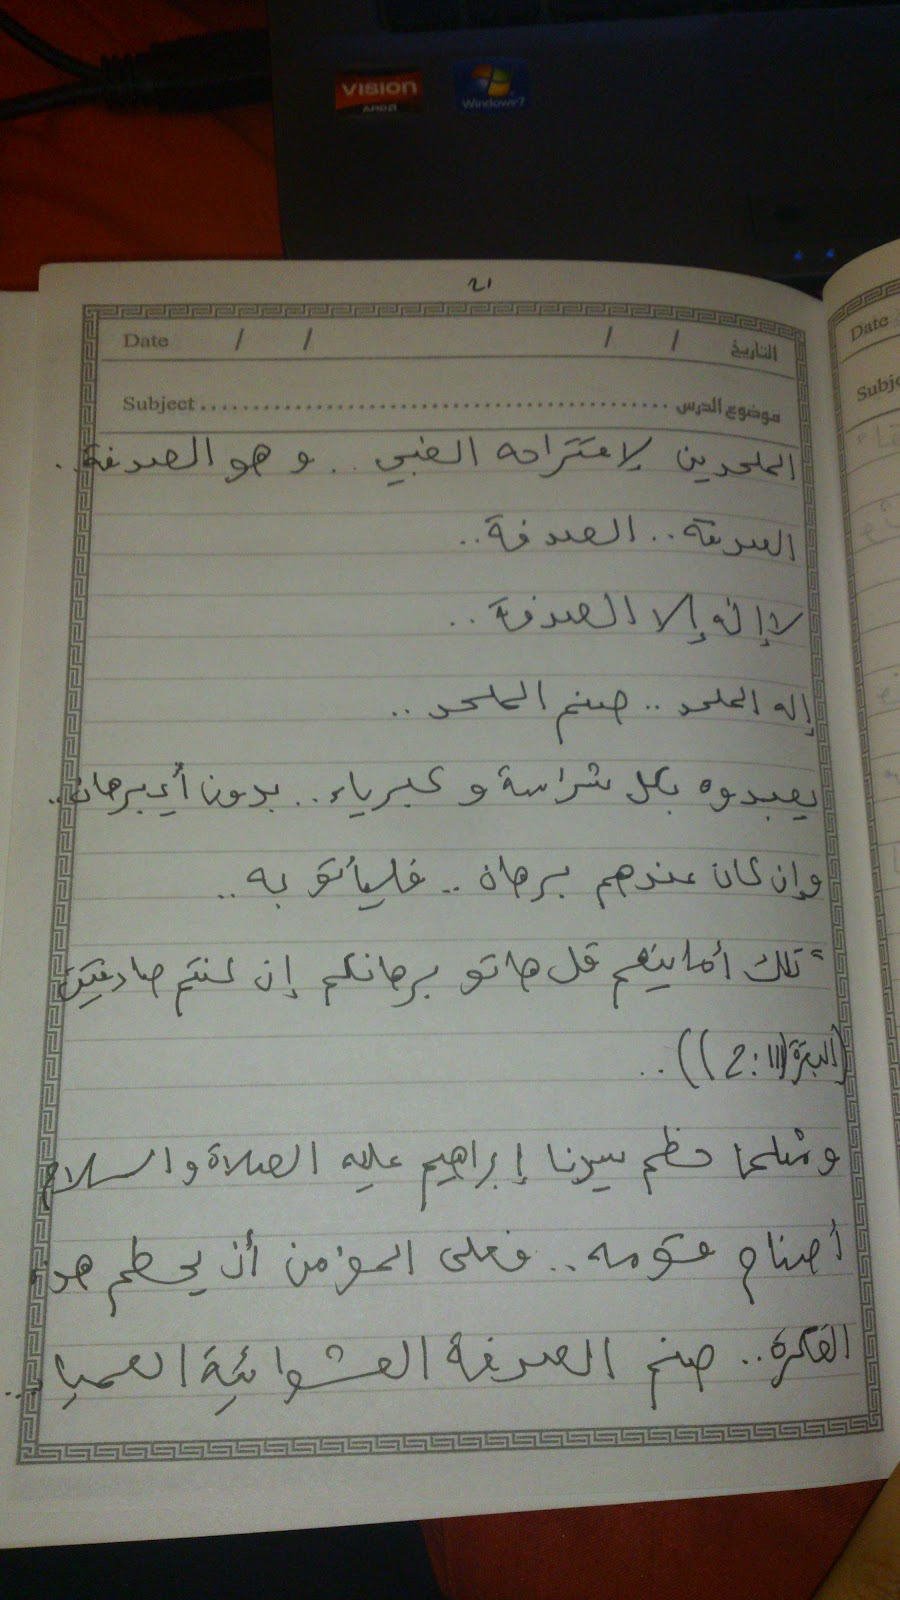 VISION
AMD
Windows 7
21
Date / / / / التاريخ
Subject موضوع الدرس
الملحدين لإقتراحه الغبي .. و هو الصدفة ..
الصدفة .. الصدفة ..
لا إله إلا الصدفة ..
إله الملحد .. صنم الملحد ..
يعبدوه بكل شراسة و كبرياء .. بدون أي برهان ..
وإن كان عندهم برهان .. فليأتو به ..
"تلك أمانيهم قل هاتو برهانكم إن كنتم صادقين
(البقرة (2:111)) ..
ومثلما حطم سيدنا إبراهيم عليه الصلاة والسلام
أصنام قومه .. فعلى المؤمن أن يحطم هذه
الفكرة .. صنم الصدفة العشوائية العميا ..
Date
Subje